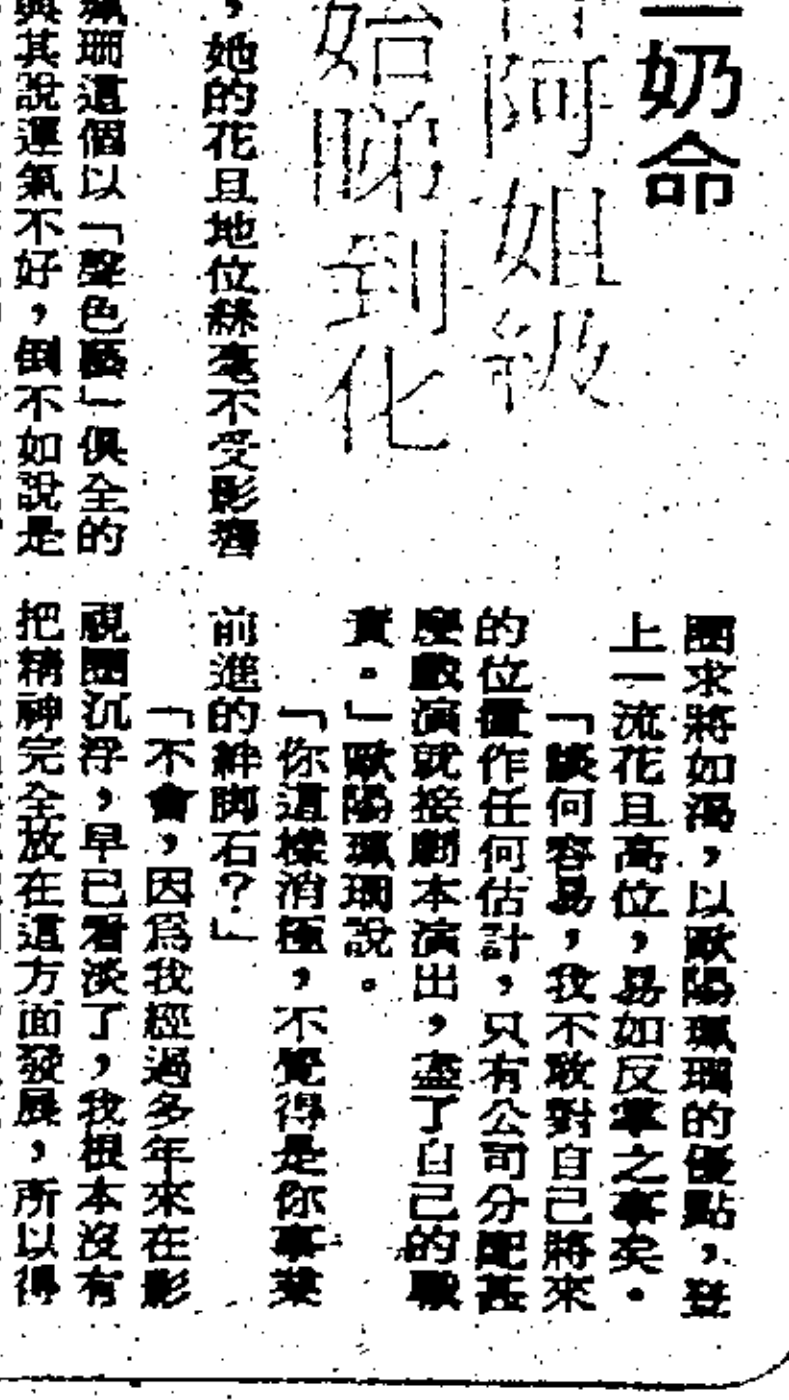 二奶命
阿姐級
始睇到化
，她的花且地位絲毫不受影響
珮珊這個以「聲色藝」俱全的
與其說運氣不好，倒不如說是
團求將如渴，以歐陽珮珊的優點，登
上一流花且高位，易如反掌之事矣。
「談何容易，我不敢對自己將來
的位置作任何估計，只有公司分配甚
麼戲演就接劇本演出，盡了自己的職
責。」歐陽珮珊說。
「你這樣消極，不覺得是你事業
前進的絆脚石？」
「不會，因爲我經過多年來在影
視圈沉浮，早已看淡了，我根本沒有
把精神完全放在這方面發展，所以得